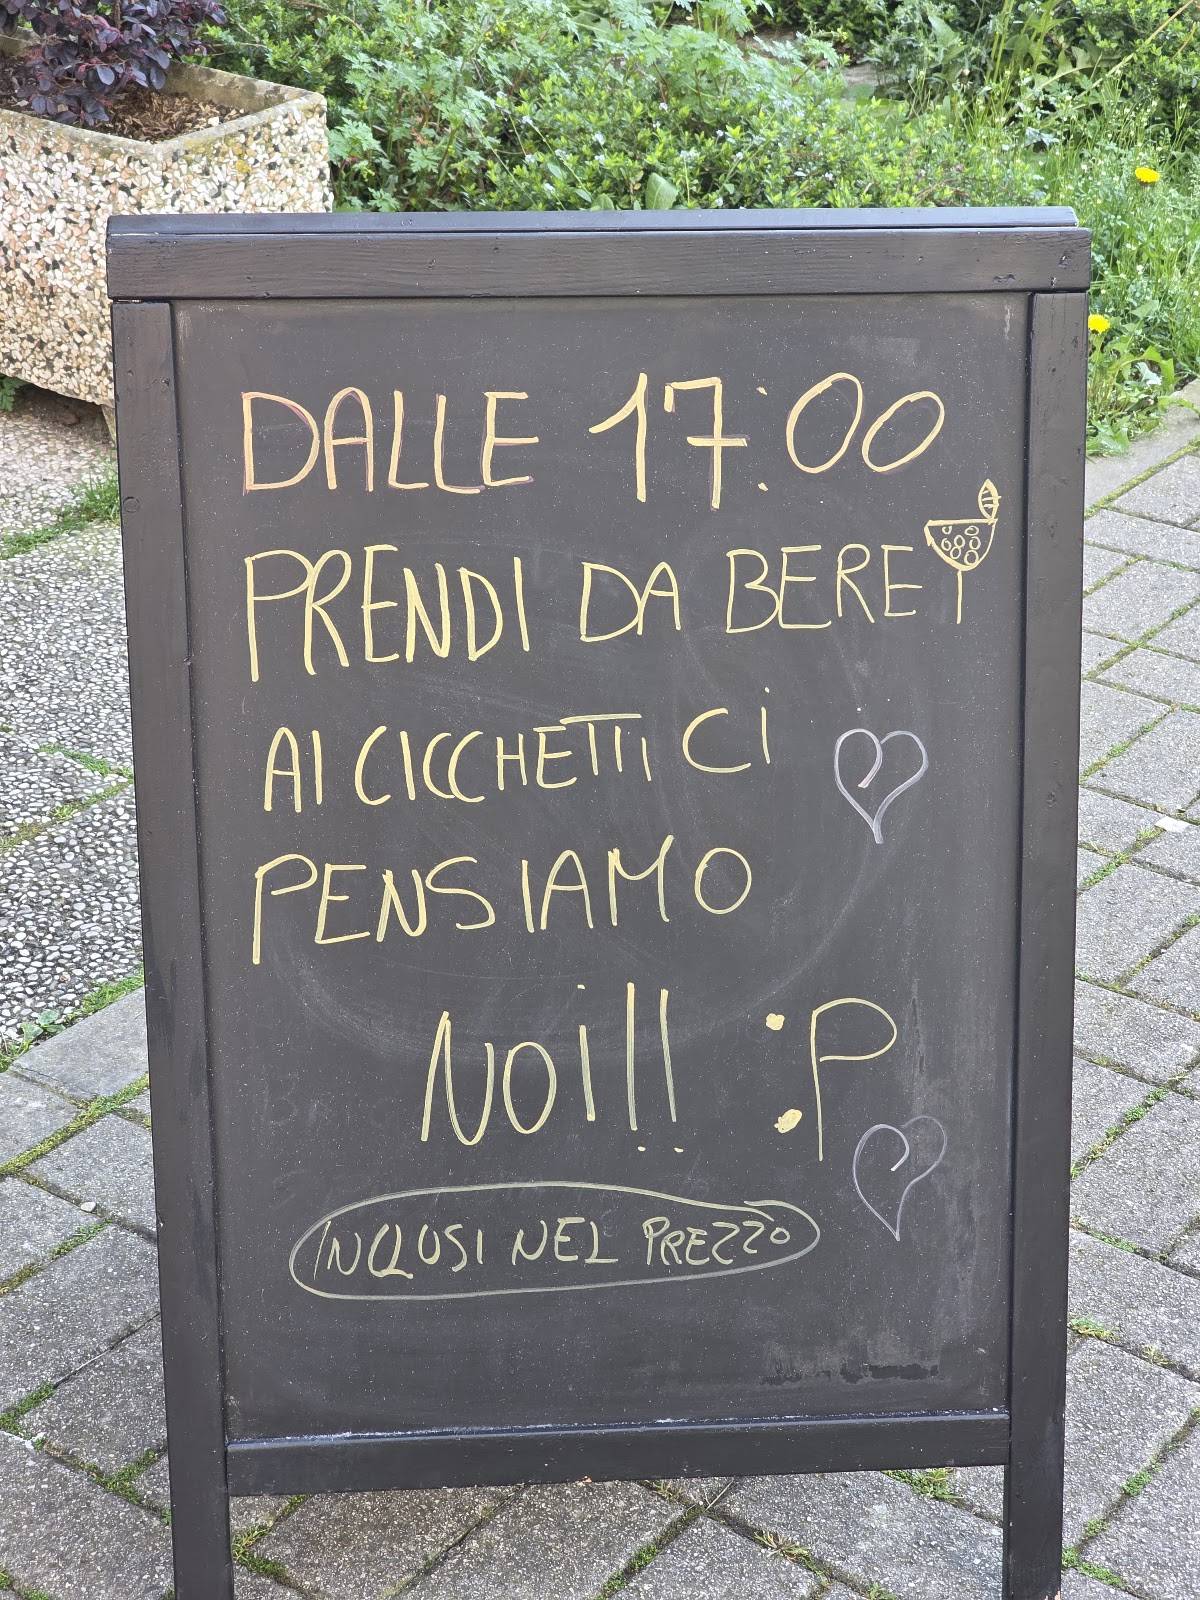 DALLE 17:00
PRENDI DA BERE
AI CICCHETTI CI
PENSIAMO
NOI!! :P
INCLUSI NEL PREZZO